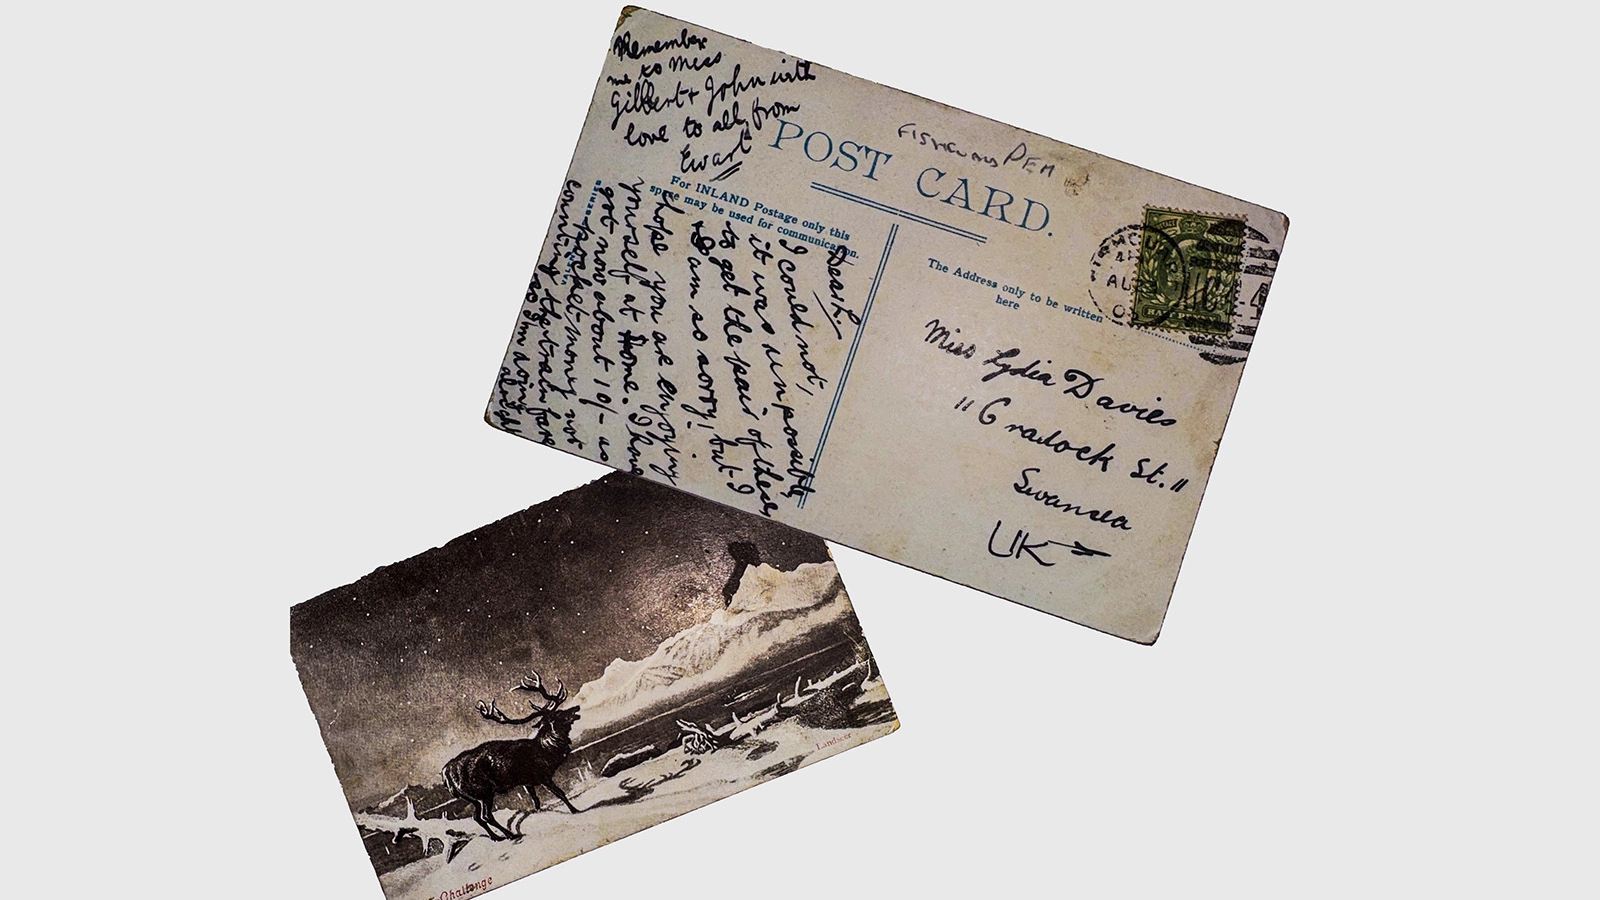 Remember
me to Miss
Gilbert + John with
love to all, from
Ewart
FISHGUARD PEM
POST CARD.
For INLAND Postage only this
space may be used for communication.
The Address only to be written
here
Dear L.
I could not,
it was impossible
to get the pair of these,
I am so sorry! but I
hope you are enjoying
yourself at home. I have
got now about 10/- as
pocket money not
counting the train fare
so I'm doing
alright
SERIES
AU
HALFPENNY
Miss Lydia Davies
"Cradock St."
Swansea
UK
Challenge
Landseer